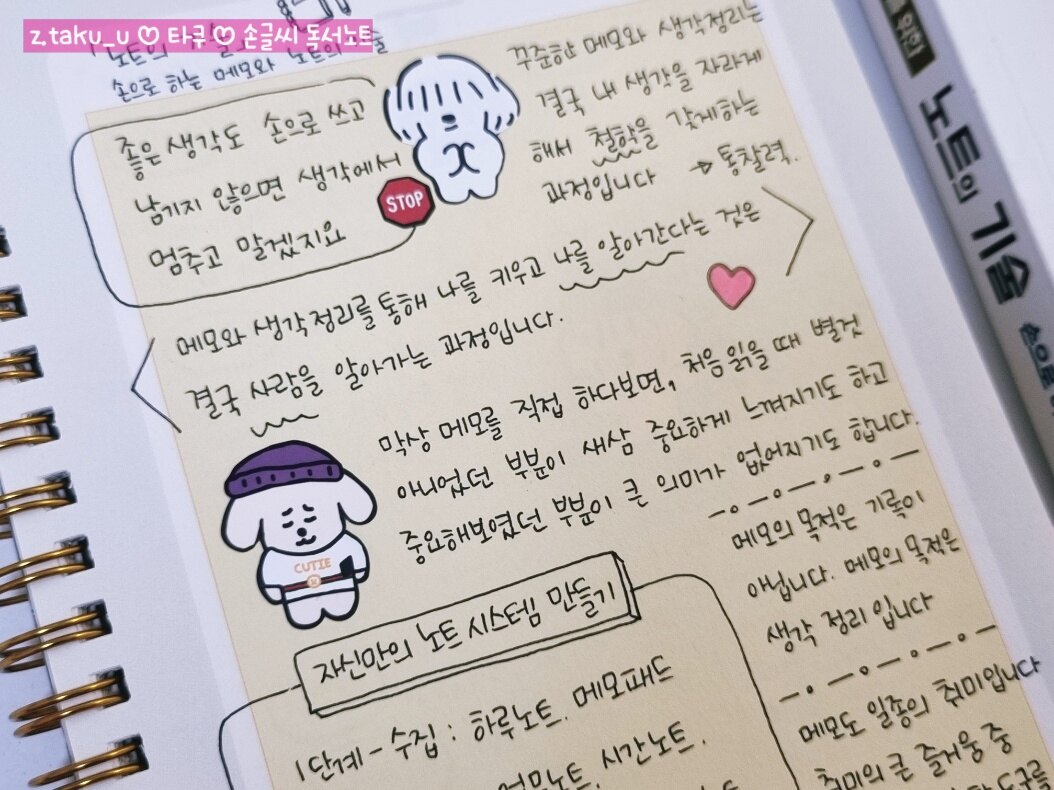 z.taku_u ♡ 타쿠 ♡ 손글씨 독서노트
손으로 하는 메모와 노트의 기술
좋은 생각도 손으로 쓰고
남기지 않으면 생각에서
멈추고 말겠지요
STOP
꾸준한 메모와 생각정리는
결국 내 생각을 자라게
해서 철학을 갖게하는
과정입니다 → 통찰력.
메모와 생각정리를 통해 나를 키우고 나를 알아간다는 것은
결국 사람을 알아가는 과정입니다.
막상 메모를 직접 하다보면, 처음 읽을 때 별것
아니었던 부분이 새삼 중요하게 느껴지기도 하고
중요해보였던 부분이 큰 의미가 없어지기도 합니다.
CUTIE
메모의 목적은 기록이
아닙니다. 메모의 목적은
생각 정리 입니다
메모도 일종의 취미입니다
취미의 큰 즐거움 중
도구를
자신만의 노트 시스템 만들기
1단계 - 수집 : 하루노트. 메모패드
업무노트, 시간노트.
위한
노트의 기술
손으로